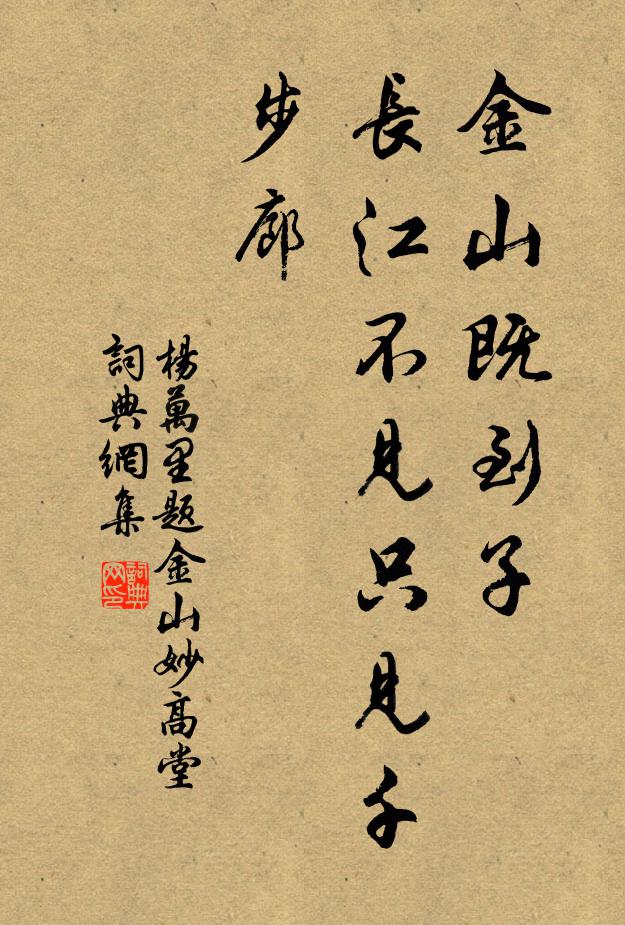 金山既到子
長江不見只見千
步廊
楊萬里題金山妙高堂
詞典網集
詞典网印